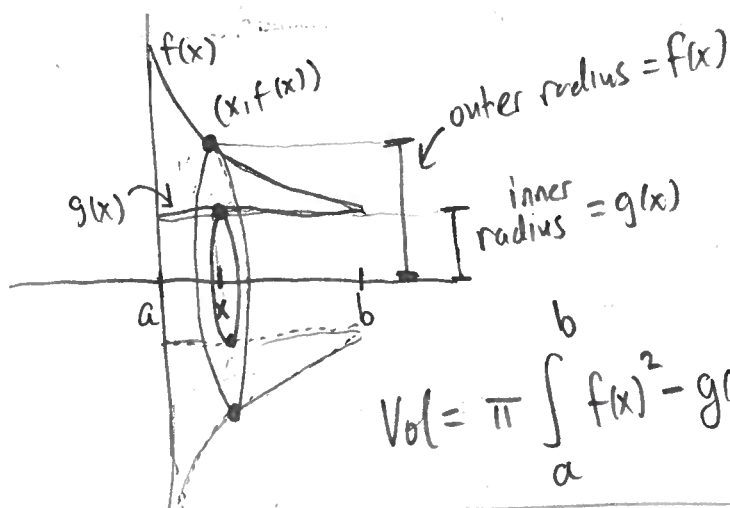 f(x)
(x, f(x))
outer radius = f(x)
g(x)
inner
radius = g(x)
a
x
b
b
Vol = π ∫ f(x)² - g(
a